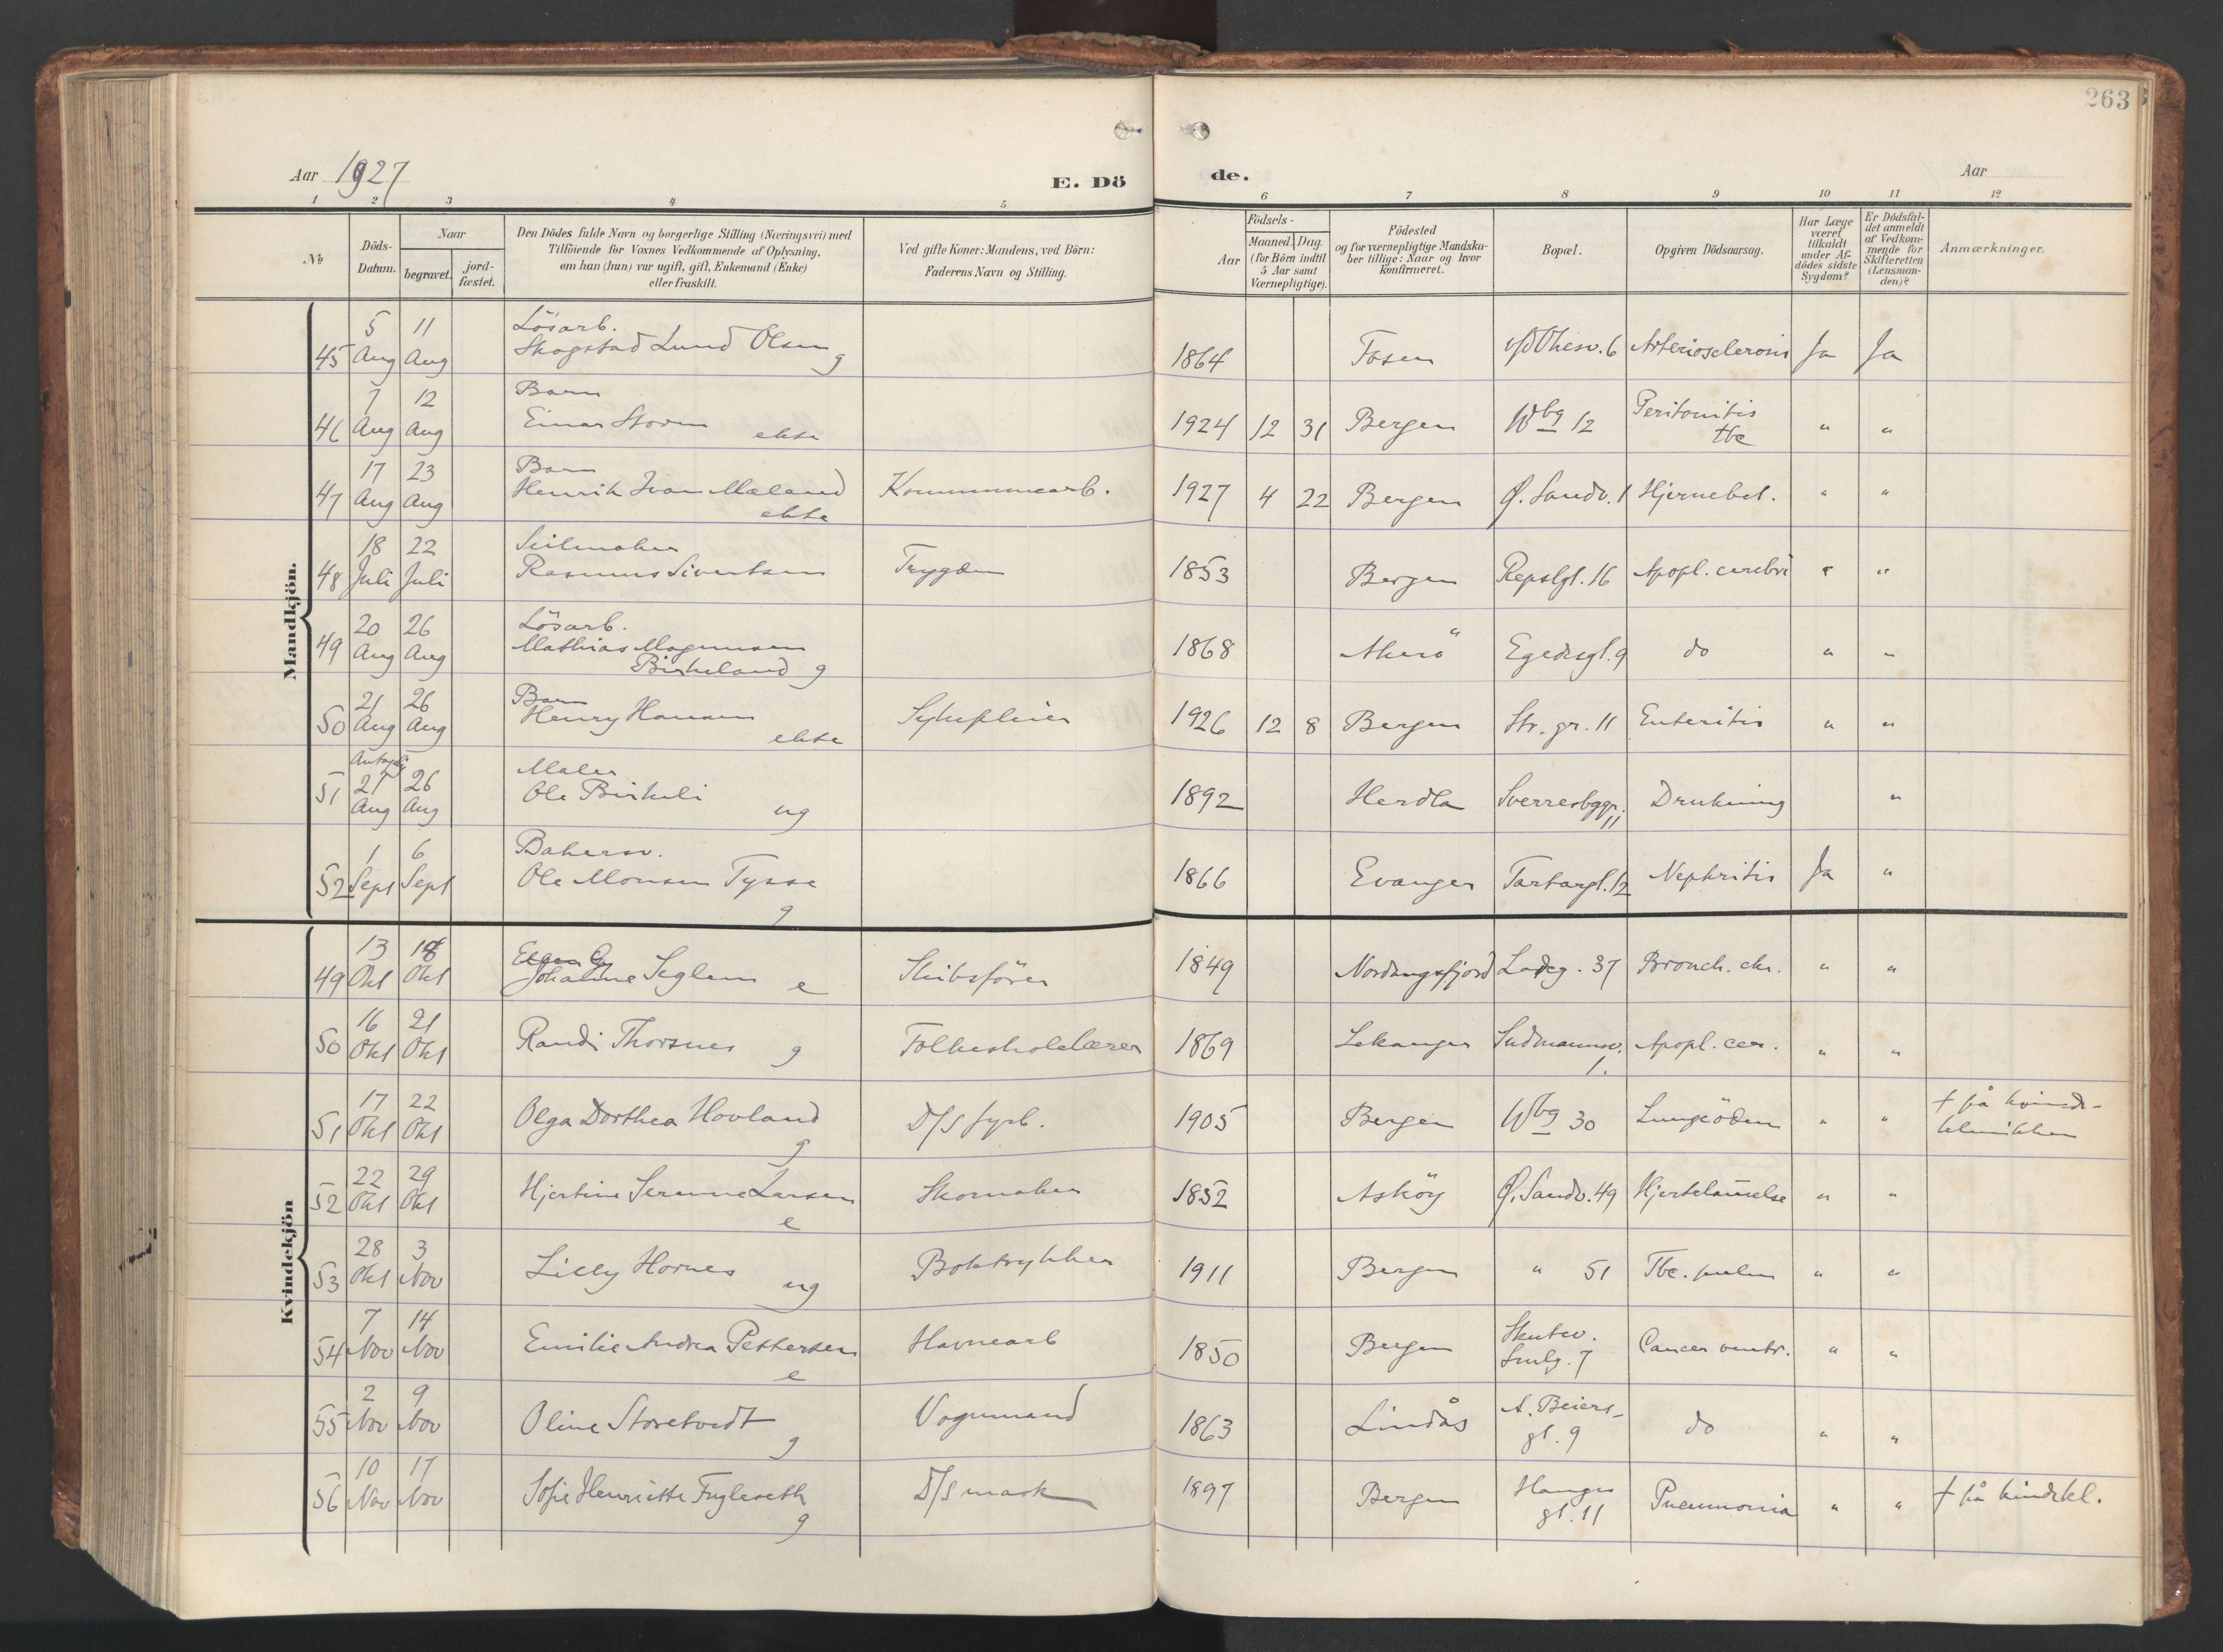 263
Aar 1927
E. Dö
de.
Aar
1 2 3 4 5 6 7 8 9 10 11 12
No
Döds-
Datum.
Naar
begravet.
jord-
fæstet.
Den Dödes fulde Navn og borgerlige Stilling (Næringsvei) med
Tilföiende for Voxnes Vedkommende af Oplysning,
om han (hun) var ugift, gift, Enkemand (Enke)
eller fraskilt.
Ved gifte Koner: Mandens, ved Börn:
Faderens Navn og Stilling.
Födsels-
Aar
Maaned. Dag.
(for Börn indtil
5 Aar samt
Værnepligtige).
Födested
og for værnepligtige Mandska-
ber tillige: Naar og hvor
Konfirmeret.
Bopæl.
Opgiven Dödsaarsag.
Har Læge
været
tilkaldt
under Af-
dödes sidste
Sygdom?
Er Dödsfal-
det anmeldt
af Vedkom-
mende for
Skifteretten
(Lensman-
den)?
Anmærkninger.
Mandkjön.
45 5 Aug 11 Aug Lösarb.
Skogstad Lund Olsen g 1864 Fosen 6 Arteriosclerosis Ja Ja
46 7 Aug 12 Aug Barn
Einar Storm ekte 1924 12 31 Bergen Wbg 12 Peritonitis
tbc " "
47 17 Aug 23 Aug Barn
Henrik Ivan Mæland
ekte Kommunearb. 1927 4 22 Bergen Ø. Sandv. 1 Hjernebet. " "
48 18 Juli 22 Juli Seilmaker
Rasmus Sivertsen Trygden 1853 Bergen Repslgt. 16 Apopl. cerebri " "
49 20 Aug 26 Aug Lösarb.
Mathias Magnussen
Birkeland g 1868 Akerö Egedesgt. 9 do " "
50 21 Aug 26 Aug Barn
Henry Hansen
ekte Sykepleier 1926 12 8 Bergen Str. gr. 11 Enteritis " "
51 Antagelig
21 Aug 26 Aug Maler
Ole Birkeli
ug 1892 Herdla Sverresbggr.
11 Drukning "
52 1 Sept 6 Sept Bakersv.
Ole Monsen Tysse
g 1866 Evanger Tartargt. 12 Nephritis Ja "
Kvindekjön
49 13 Okt 18 Okt
Johanne Seglem e Skibsförer 1849 Nordangsfjord Ladeg. 37 Bronch. chr. " "
50 16 Okt 21 Okt Randi Thorsnes g Folkeskolelærer 1869 Lekanger Sudmannsv.
1. Apopl. cer. " "
51 17 Okt 22 Okt Olga Dorthea Hovland
g D/S fyrb. 1905 Bergen Wbg 30 Lungeödem " " † på kvinde-
klinikken
52 22 Okt 29 Okt Hjertine Serenne Larsen
e Skomaker 1852 Asköy Ø. Sandv. 49 Hjertelam̄else " "
53 28 Okt 3 Nov Lilly Hornes ug Boktrykker 1911 Bergen " 51 Tbc. pulm " "
54 7 Nov 14 Nov Emilie Andrea Pettersen
e Havnearb 1850 Bergen Skutev.
Smlg. 7 Cancer ventr. " "
55 2 Nov 9 Nov Oline Storetvedt
g Vognmand 1863 Lindås A. Beiers-
gt. 9 do " "
56 10 Nov 17 Nov Sofie Henriette Fugleseth
g D/S mask 1897 Bergen Hauges
gt. 11 Pneumonia " " † på kvindekl.